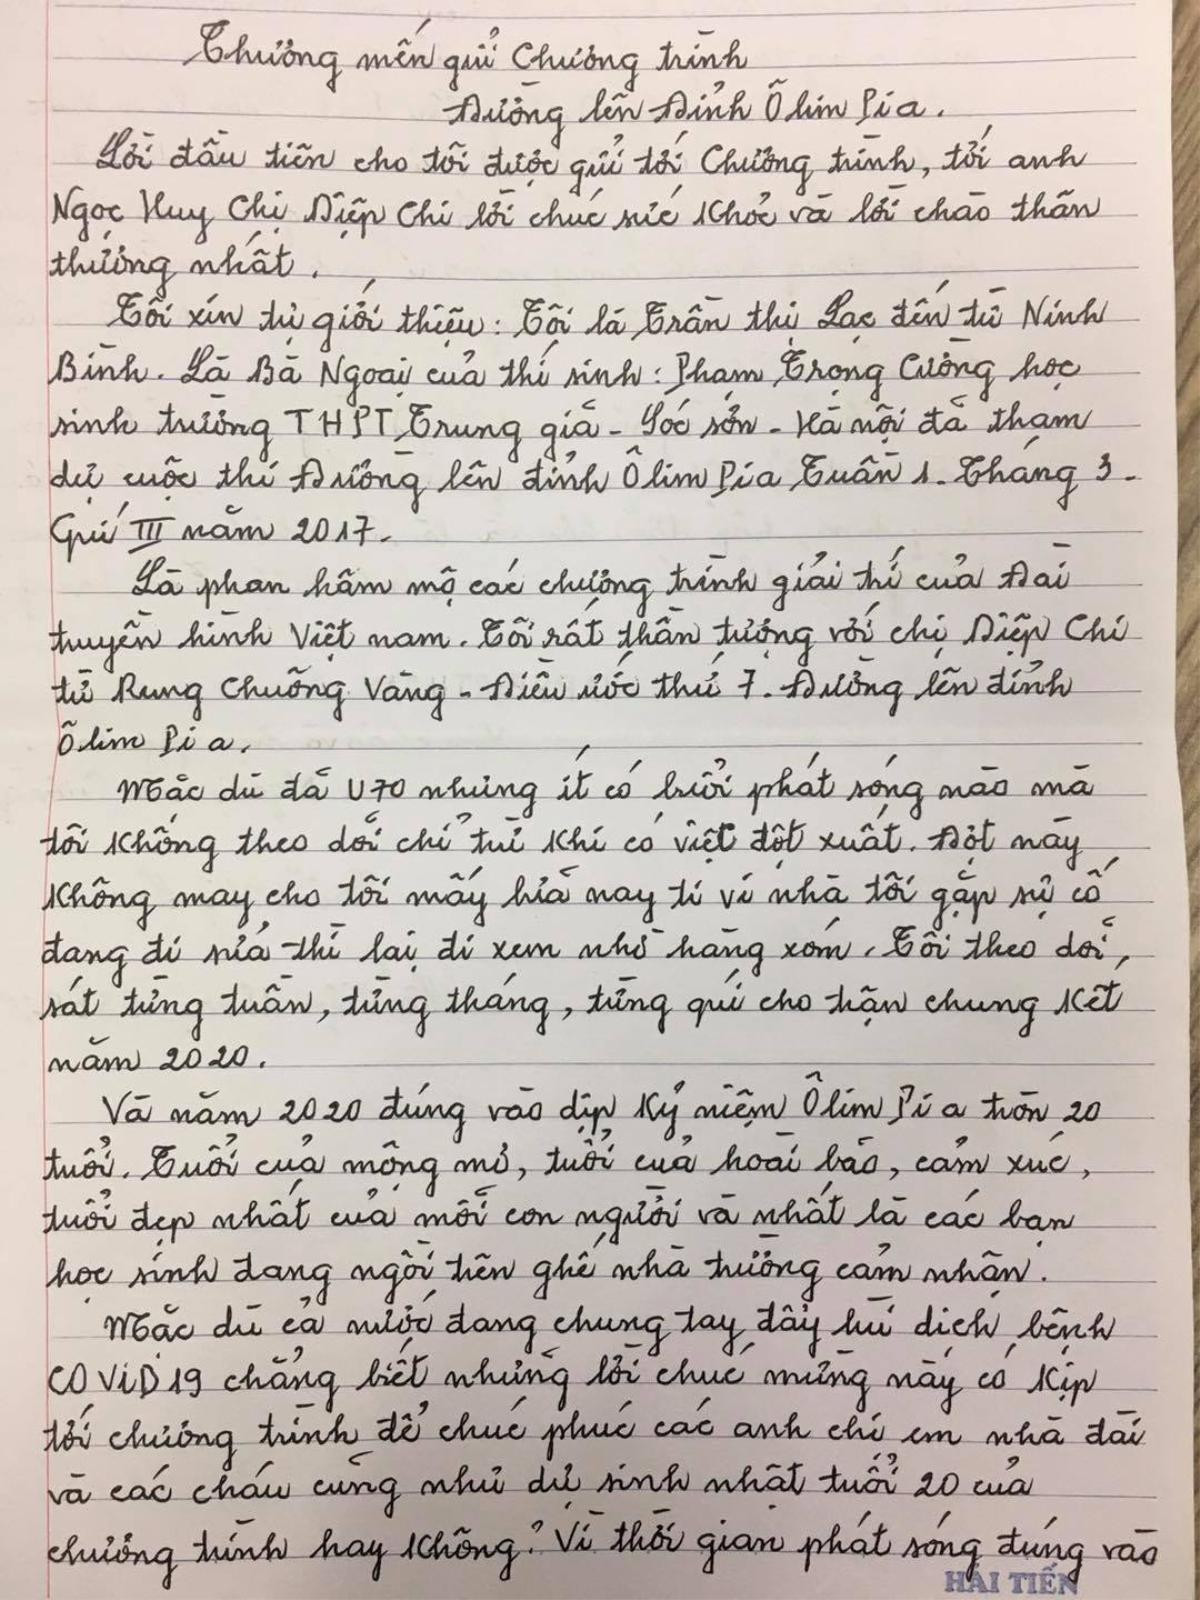 Thương mến gửi Chương trình
Đường lên Đỉnh Ô lim Pi a.
Lời đầu tiên cho tôi được gửi tới Chương trình, tới anh
Ngọc Huy Chị Diệp Chi lời chúc sức khỏe và lời chào thân
thương nhất.
Tôi xin tự giới thiệu: Tôi là Trần thị Lạc đến từ Ninh
Bình. Là Bà Ngoại của thí sinh: Phạm Trọng Cường học
sinh trường THPT Trung giã - Sóc sơn - Hà nội đã tham
dự cuộc thi Đường lên đỉnh Ô lim Pi a Tuần 1 - Tháng 3 -
Quí III năm 2017.
Là phan hâm mộ các chương trình giải trí của Đài
truyền hình Việt nam. Tôi rất thân tượng với chị Diệp Chi
từ Rung Chuông Vàng - Điều ước thứ 7. Đường lên đỉnh
Ô lim Pi a.
Mặc dù đã U70 nhưng ít có buổi phát sóng nào mà
tôi không theo dõi chỉ trừ khi có việt đột xuất. Đợt này
không may cho tôi mấy hứa nay ti vi nhà tôi gặp sự cố
đang đi sửa thì lại đi xem nhờ hàng xóm. Tôi theo dõi,
sát từng tuần, từng tháng, từng quí cho trận chung kết
năm 2020.
Và năm 2020 đúng vào dịp kỷ niệm Ô lim Pi a tròn 20
tuổi. Tuổi của mộng mơ, tuổi của hoài bão, cảm xúc,
tuổi đẹp nhất của mỗi con người và nhất là các bạn
học sinh đang ngồi trên ghế nhà trường cảm nhận.
Mặc dù cả nước đang chung tay đẩy lùi dịch bệnh
COViD 19 chẳng biết những lời chúc mừng này có kịp
tới chương trình để chúc phúc các anh chị em nhà đài
và các cháu cũng như dự sinh nhật tuổi 20 của
chương trình hay không? Vì thời gian phát sóng đúng vào
HẢI TIẾN